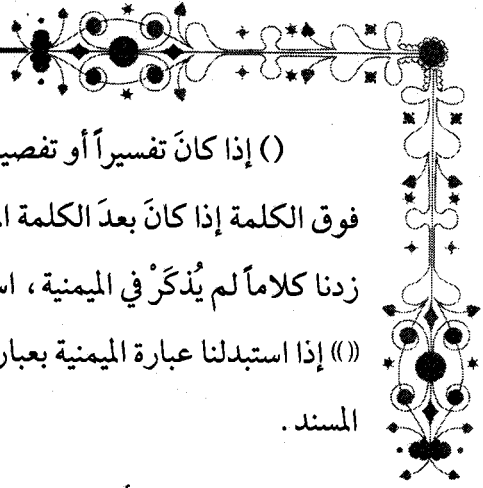 () إذا كانَ تفسيراً أو
فوق الكلمة إذا كانَ بعدَ الكلمة
زدنا كلاماً لم يُذكَرْ في الميمنية ،
(()) إذا استبدلنا عبارة الميمنية
المسند .